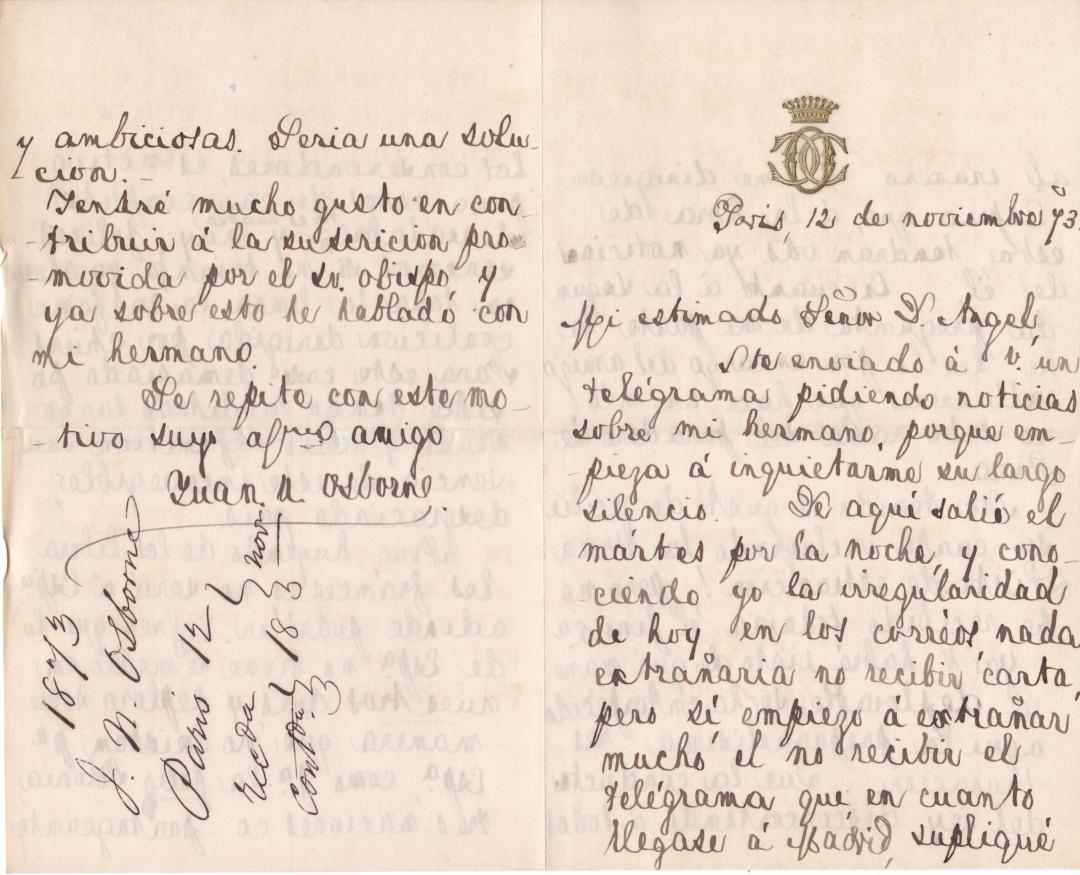 Paris, 12 de noviembre 73.
Mi estimado Señor D. Angel,
He enviado á V. un
telégrama pidiendo noticias
sobre mi hermano, porque em-
-pieza á inquietarme su largo
silencio. De aquí salió el
mártes por la noche, y cono-
-ciendo yo la irregularidad
de hoy en los corréos nada
extrañaria no recibir carta,
pero sí empiezo á extrañar
mucho el no recibir el
telégrama que en cuanto
llegase á Madrid, supliqué
y ambiciosas. Seria una solu-
cion.-
Tendré mucho gusto en con-
-tribuir á la suscricion pro-
-movida por el sr. obispo, y
ya sobre esto he hablado con
mi hermano
Se repite con este mo-
-tivo suyo afmo amigo
Juan N. Osborne.
1873
J. N. Osborne
Paris 12
Recda
Contda 18
Novr